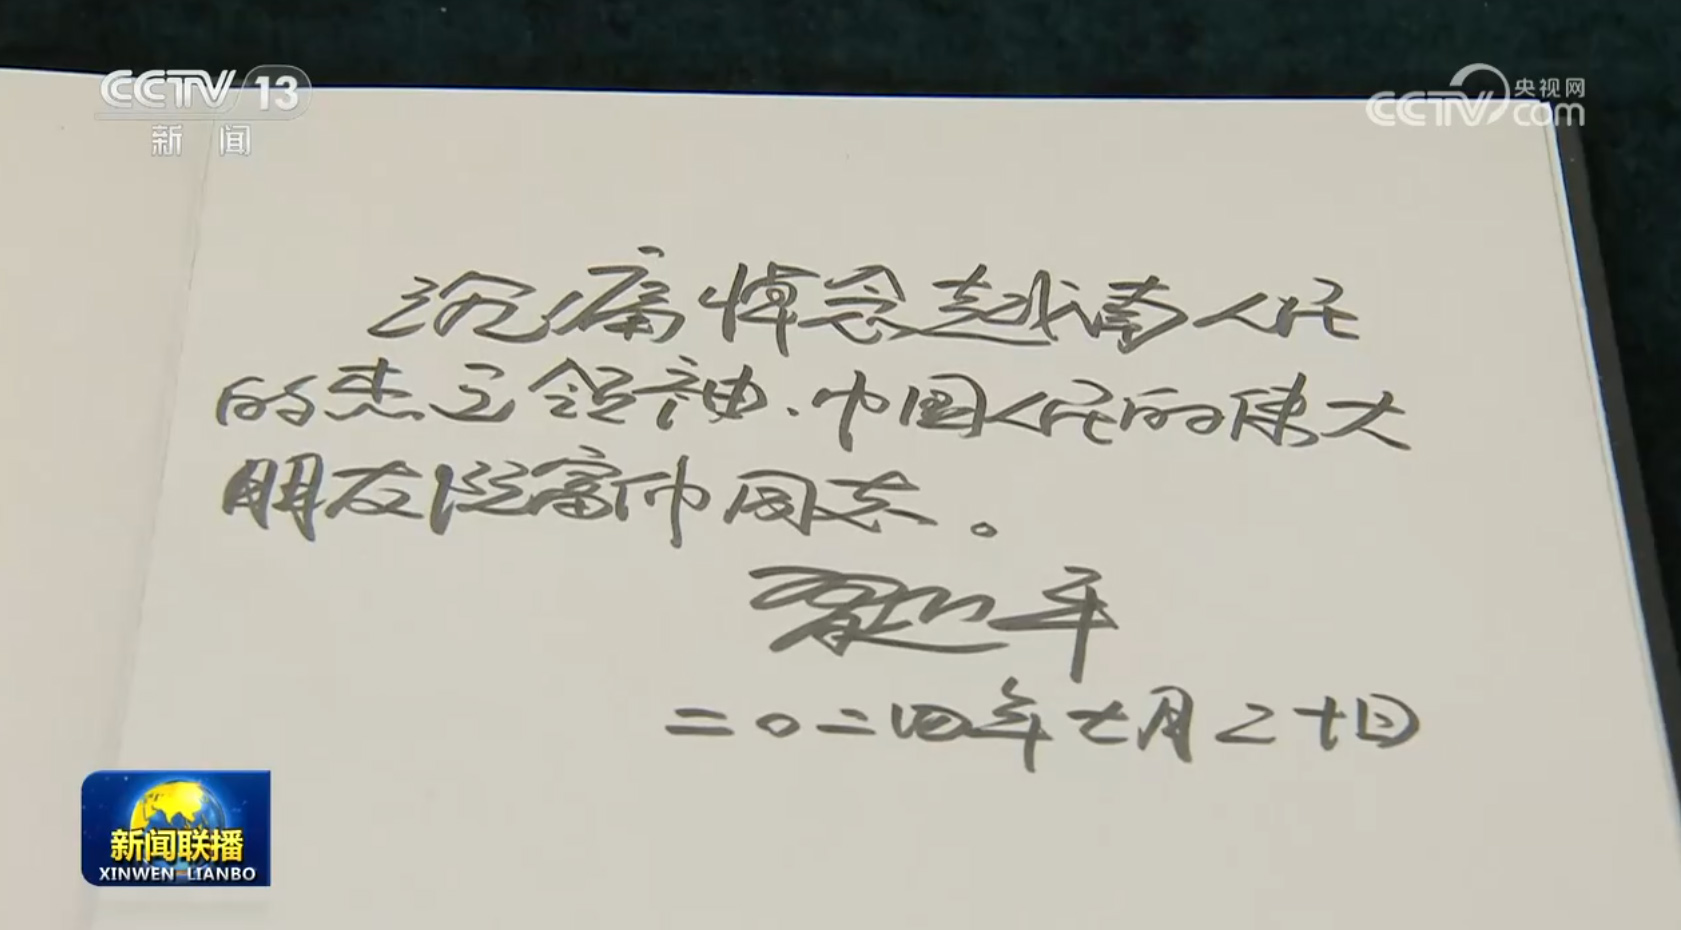 CCTV 13
新闻
央视网
CCTV.com
沉痛悼念越南人民
的杰出领袖、中国人民的伟大
朋友阮富仲同志。
习近平
二〇二四年七月二十日
新闻联播
XINWEN LIANBO